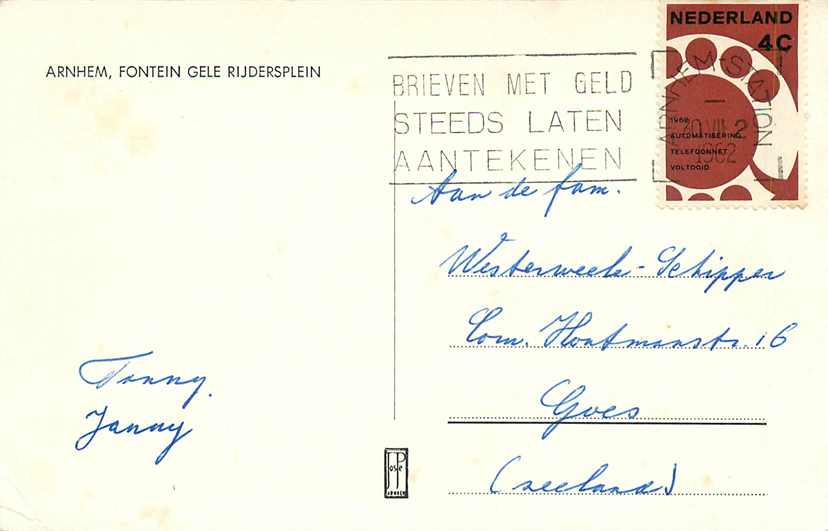 ARNHEM, FONTEIN GELE RIJDERSPLEIN
BRIEVEN MET GELD
STEEDS LATEN
AANTEKENEN
ARNHEM-STATION
1962
NEDERLAND
4C
1962
AUTOMATISERING
TELEFOONNET
VOLTOOID
Aan de fam.
Westerweele-Schipper
Com. Houtmanstr. 16
Goes
(zeeland)
Tonny.
Janny
JosPe
ARNHEM